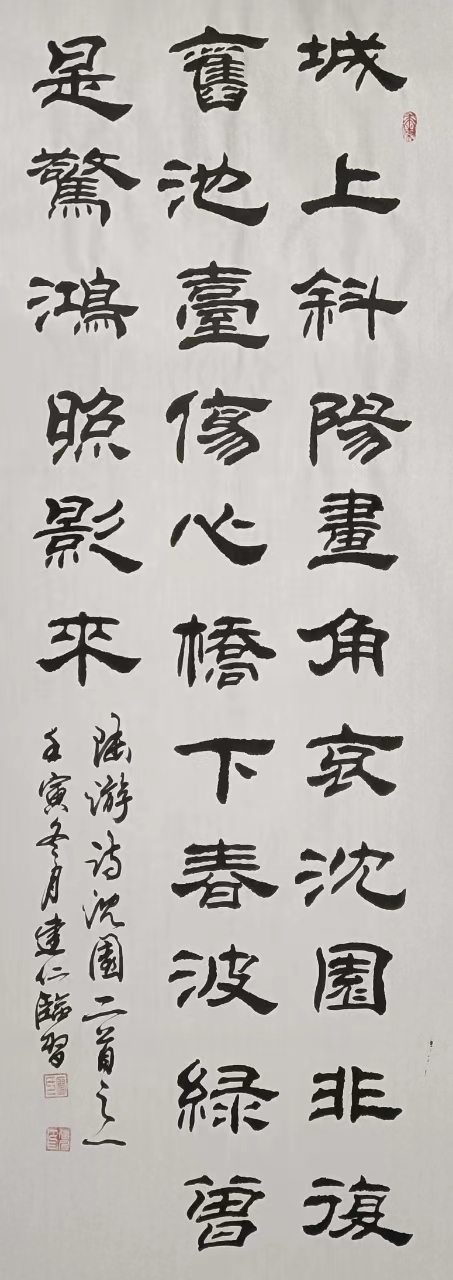 城上斜陽畫角哀沈園非復
舊池臺傷心橋下春波綠曾
是驚鴻照影來
陸游詩沈園二首之一
壬寅冬月建仁臨習